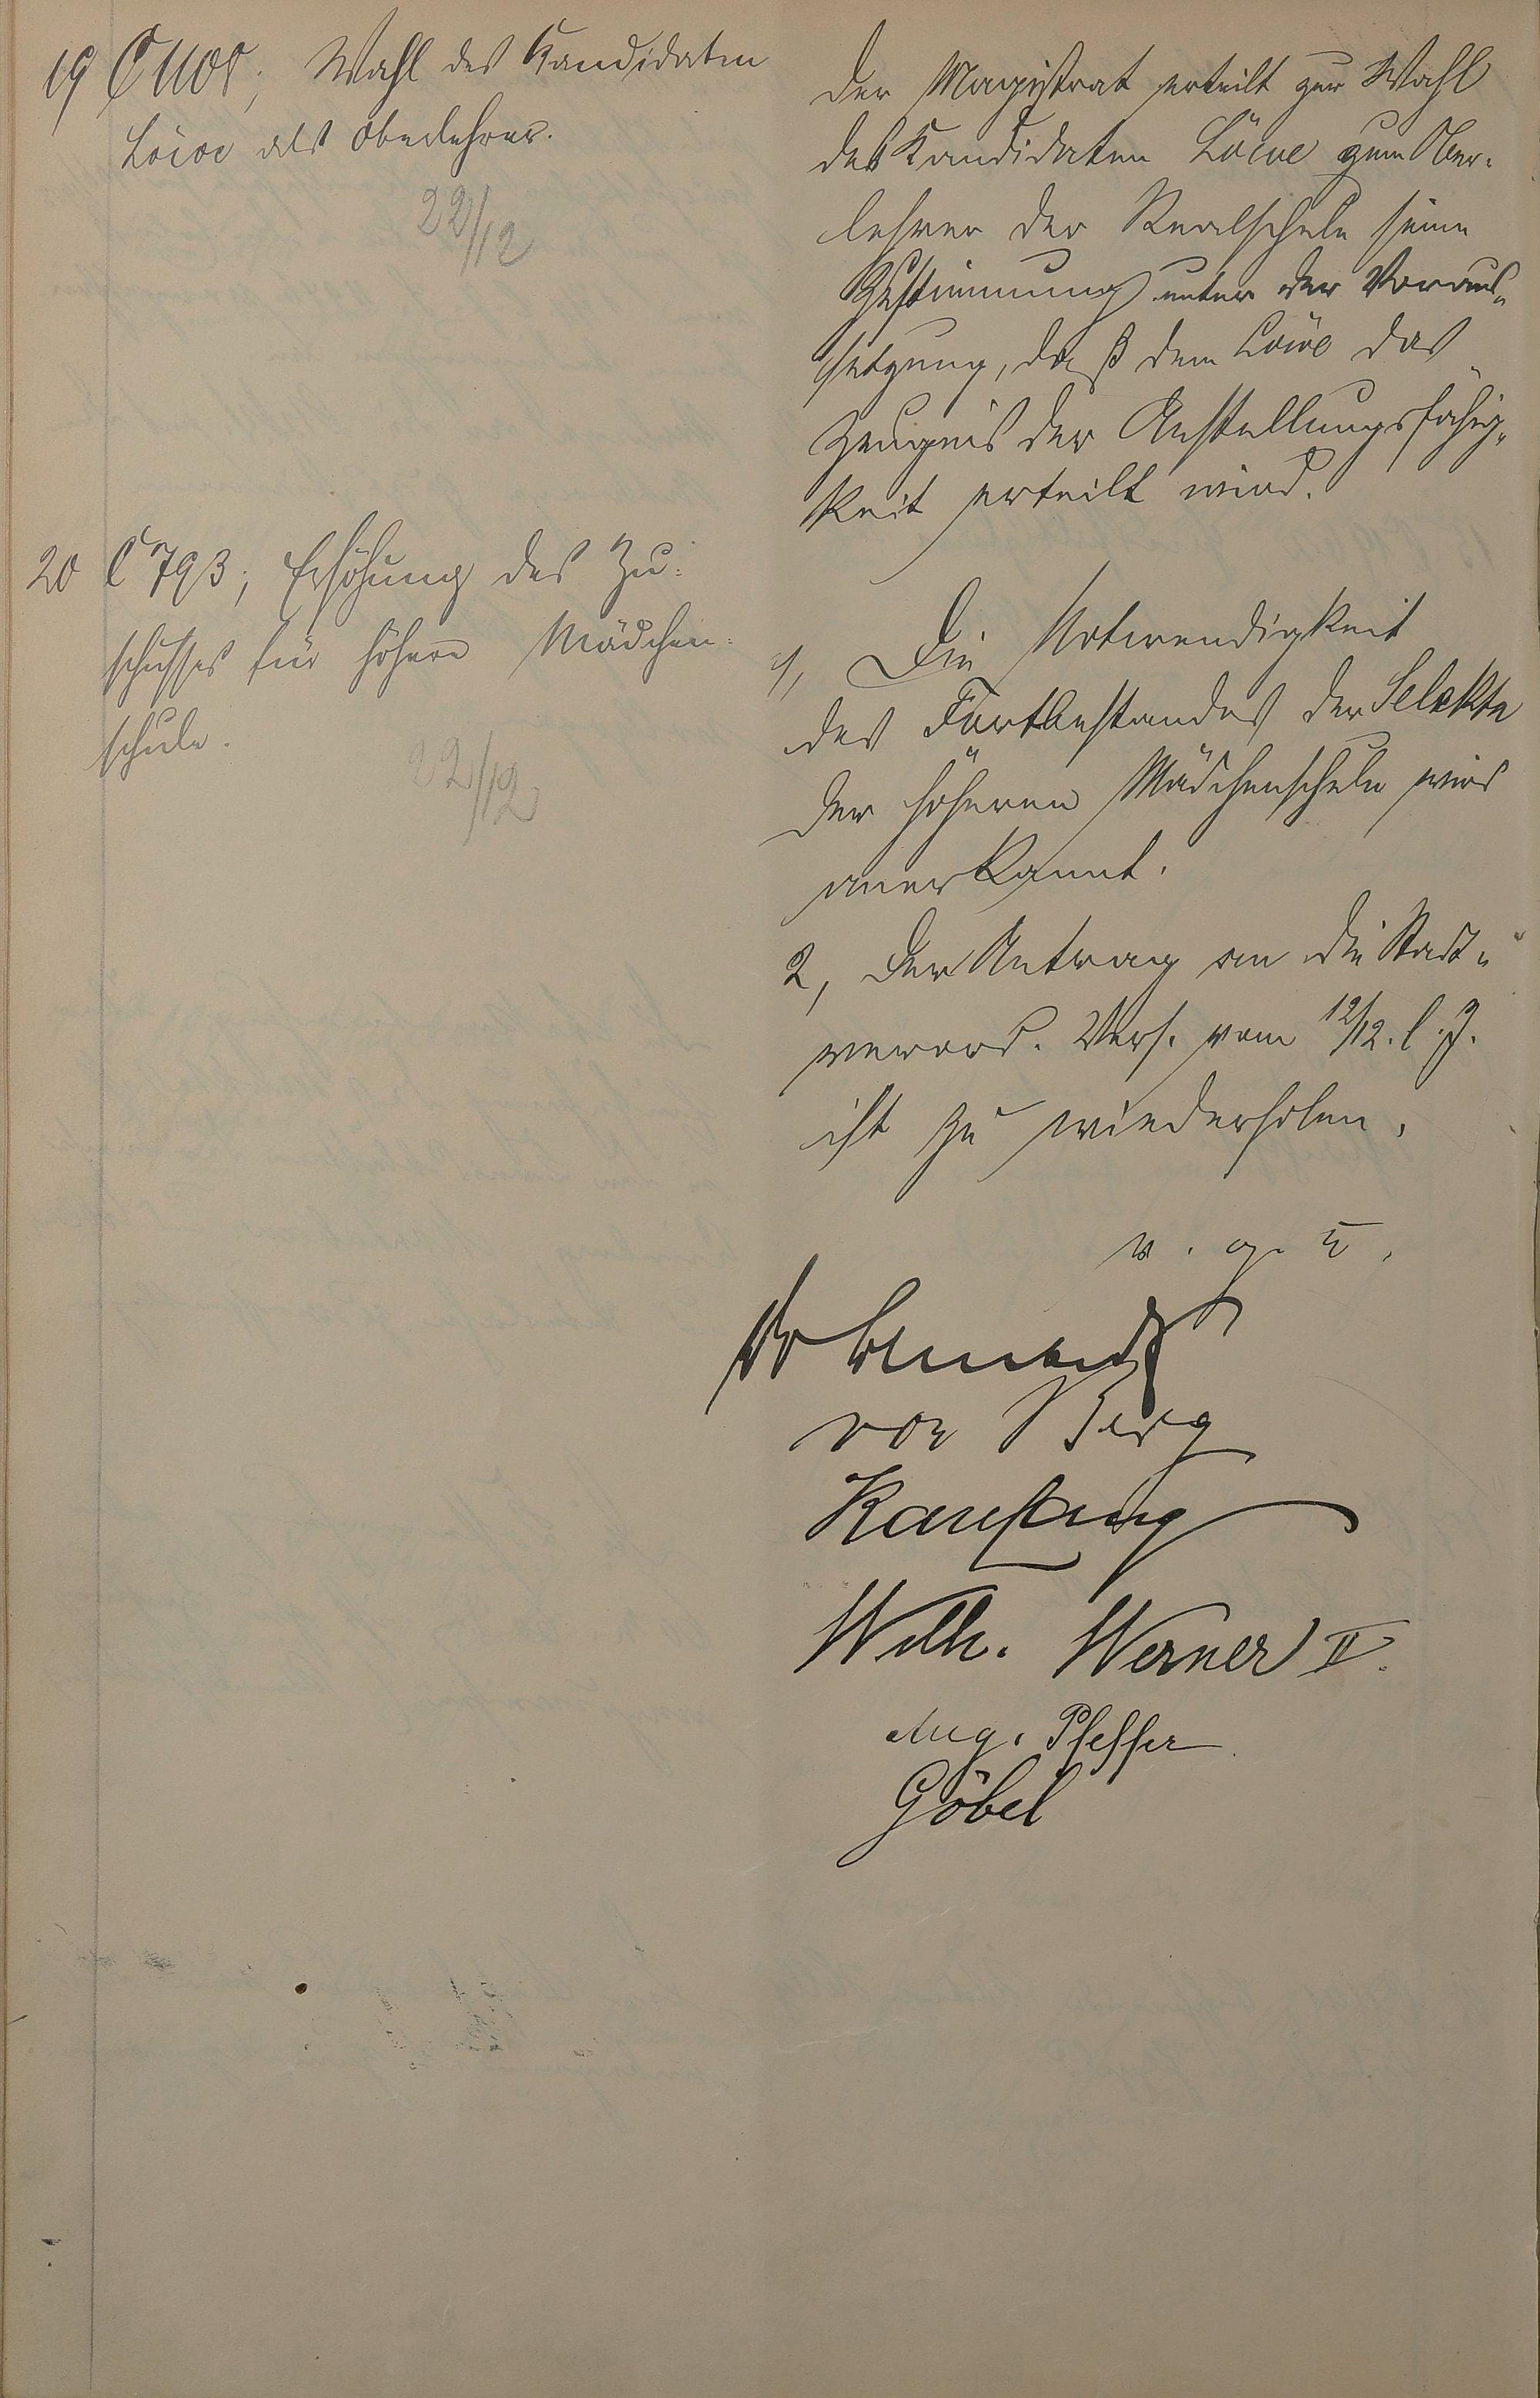 19 C 1108; Wahl des Kandidaten
Löwe als Oberlehrer.
22/12
Der Magistrat erteilt zur Wahl
des Kandidaten Löwe zum Ober-
lehrer der Realschule seine
Zustimmung unter der Voraus-
setzung, daß dem Löwe das
Zeugnis der Anstellungsfähig-
keit erteilt wird.
20 C 793; Erhöhung des Zu-
schusses für höhere Mädchen-
schule.
22/12
1, Die Notwendigkeit
des Fortbestandes der Selekta
der höheren Mädchenschule wird
anerkannt.
2, Der Antrag an die Stadt-
verord. Vers. vom 12/12. l. J.
ist zu wiederholen.
v. g. u.
Dr
von Berg
Kaufung
Wilh. Werner II.
Aug. Pfeffer
Göbel